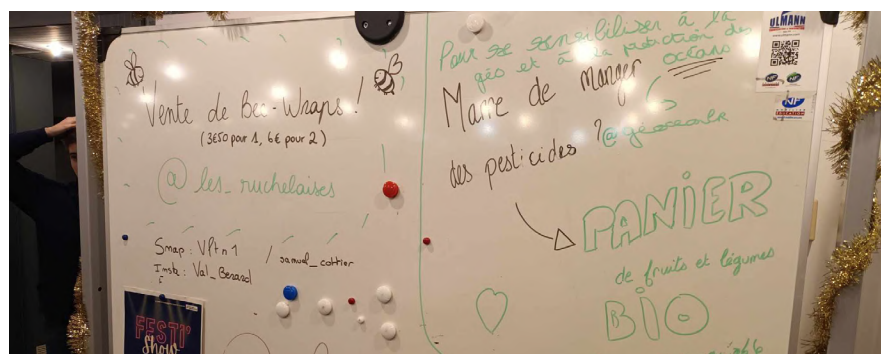 Vente de Bee-Wraps !
(3€50 pour 1, 6€ pour 2)
@les_ruchelaises
Snap : Vltn1
Insta : Val_Besard
/ samuel_cottier
FESTI'
Show
Pour se sensibiliser à la
géo et à la protection des
océans
@geoceanlr
Marre de manger
des pesticides ?
PANIER
de fruits et légumes
BIO
ULMANN
NF
NF